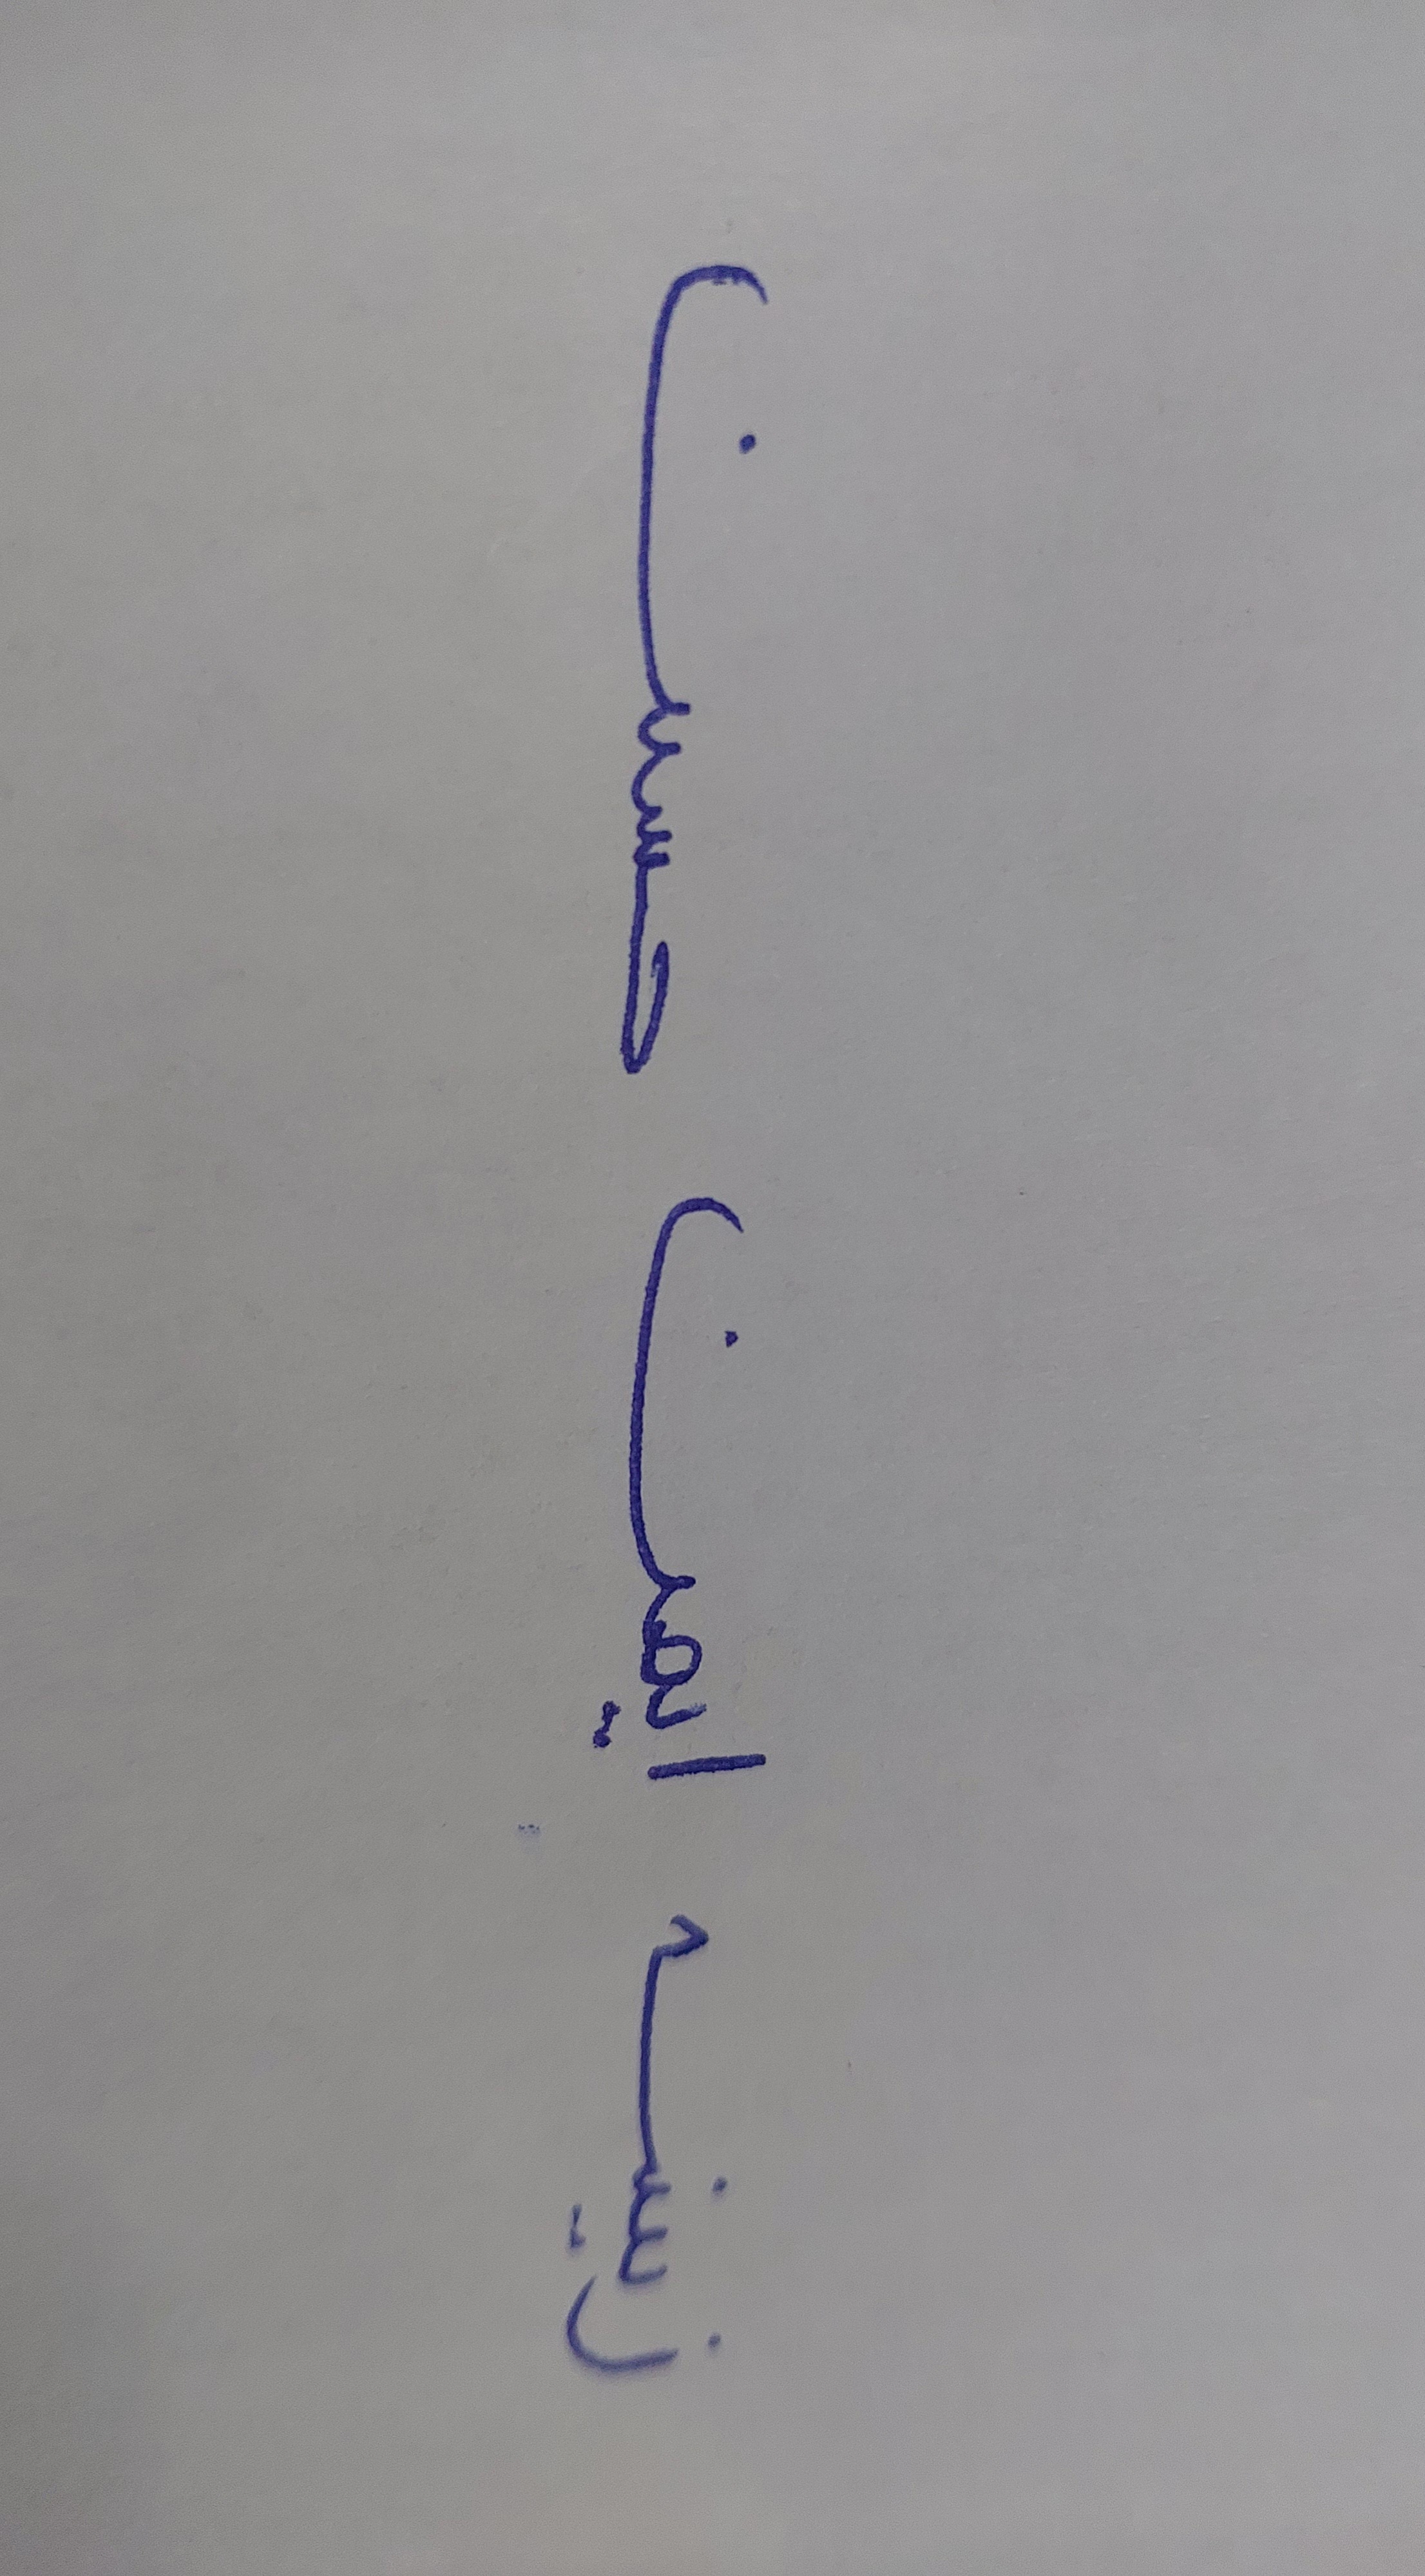 زينه ايمن حسن